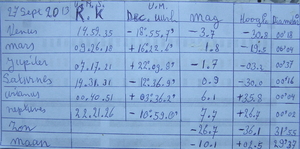 27 Sept 2013 R.K Dec. Mag Hoogte Diameter
Venus 14.59.35 -18°55.7° -3.7 -30.8 00'18
Mars 09.26.18 +16°22.6° 1.8 -19.5 00'04
Jupiter 07.17.21 +22°09. -1.7 -03.2 00'37
Saturnus 14.31.31 -12°36.9° 0.9 -30.0 00'16
Uranus 00.40.51 +03°36.2° 6.1 +35.8 00'04
Neptunus 22.21.26 -10°59.0° 7.7 +26.7 00'02
Zon -26.7 -36.1 31'55
Maan -10.1 +02.5 29'37